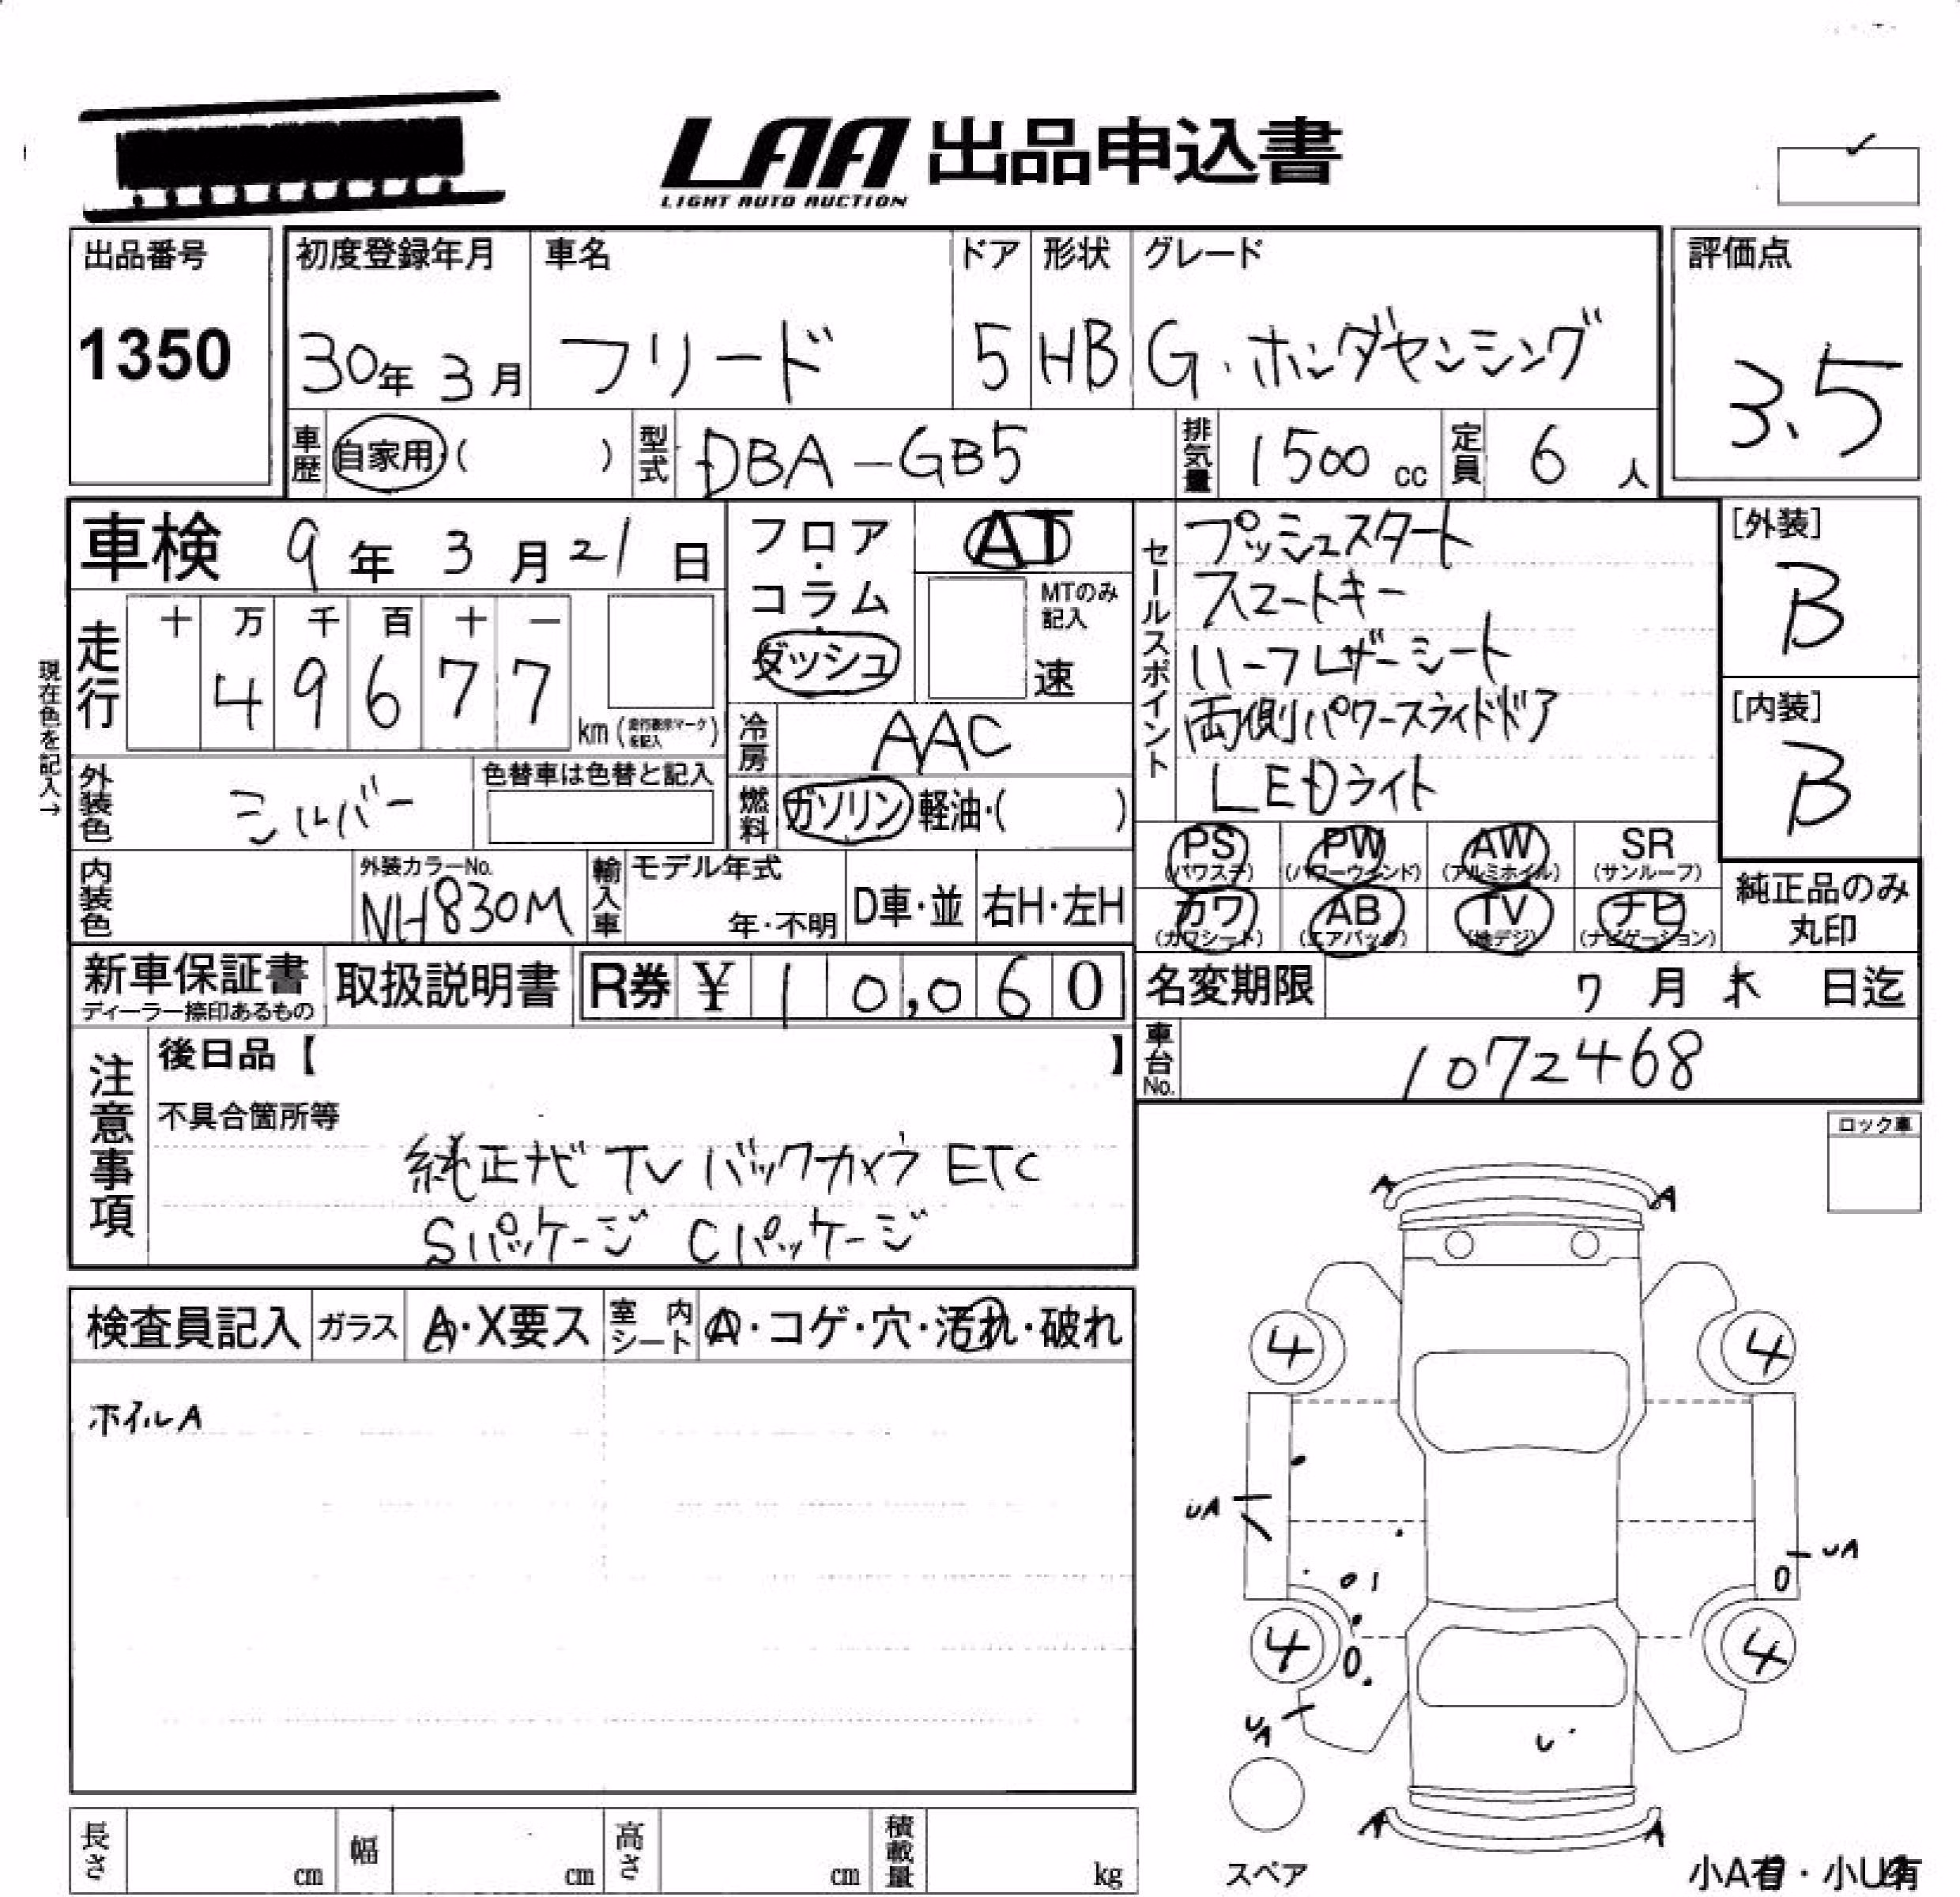 LAA 出品申込書
LIGHT AUTO AUCTION
出品番号
1350
初度登録年月
30年 3月
車名
フリード
ドア
5
形状
HB
グレード
G・ホンダセンシング
評価点
3.5
車歴
自家用・( )
型式
DBA-GB5
排気量
1500 cc
定員
6 人
車検 9年 3月 21日
フロア・コラム・ダッシュ
AT
MTのみ記入
速
セールスポイント
プッシュスタート
スマートキー
ハーフレザーシート
両側パワースライドドア
LEDライト
[外装]
B
[内装]
B
現在色を記入→
走行
十 万 千 百 十 一
4 9 6 7 7
km (走行表示マークを記入)
冷房
AAC
外装色
シルバー
色替車は色替と記入
燃料
ガソリン・軽油・( )
PS (パワステ)
PW (パワーウィンド)
AW (アルミホイル)
SR (サンルーフ)
カワ (カワシート)
AB (エアバック)
TV (地デジ)
ナビ (ナビゲーション)
純正品のみ丸印
内装色
外装カラーNo.
NH830M
輸入車
モデル年式
年・不明
D車・並
右H・左H
新車保証書
ディーラー捺印あるもの
取扱説明書
R券 ¥ 10,060
名変期限
7月 末 日迄
車台No.
1072468
注意事項
後日品【 】
不具合箇所等
純正ナビ TV バックカメラ ETC
Sパッケージ Cパッケージ
ロック車
検査員記入
ガラス
A・X要ス
室内シート
A・コゲ・穴・汚れ・破れ
ホイルA
A A
4 4
UA
UA
4 4
UA
U
A A
スペア
長さ cm
幅 cm
高さ cm
積載量 kg
小A有・小U有